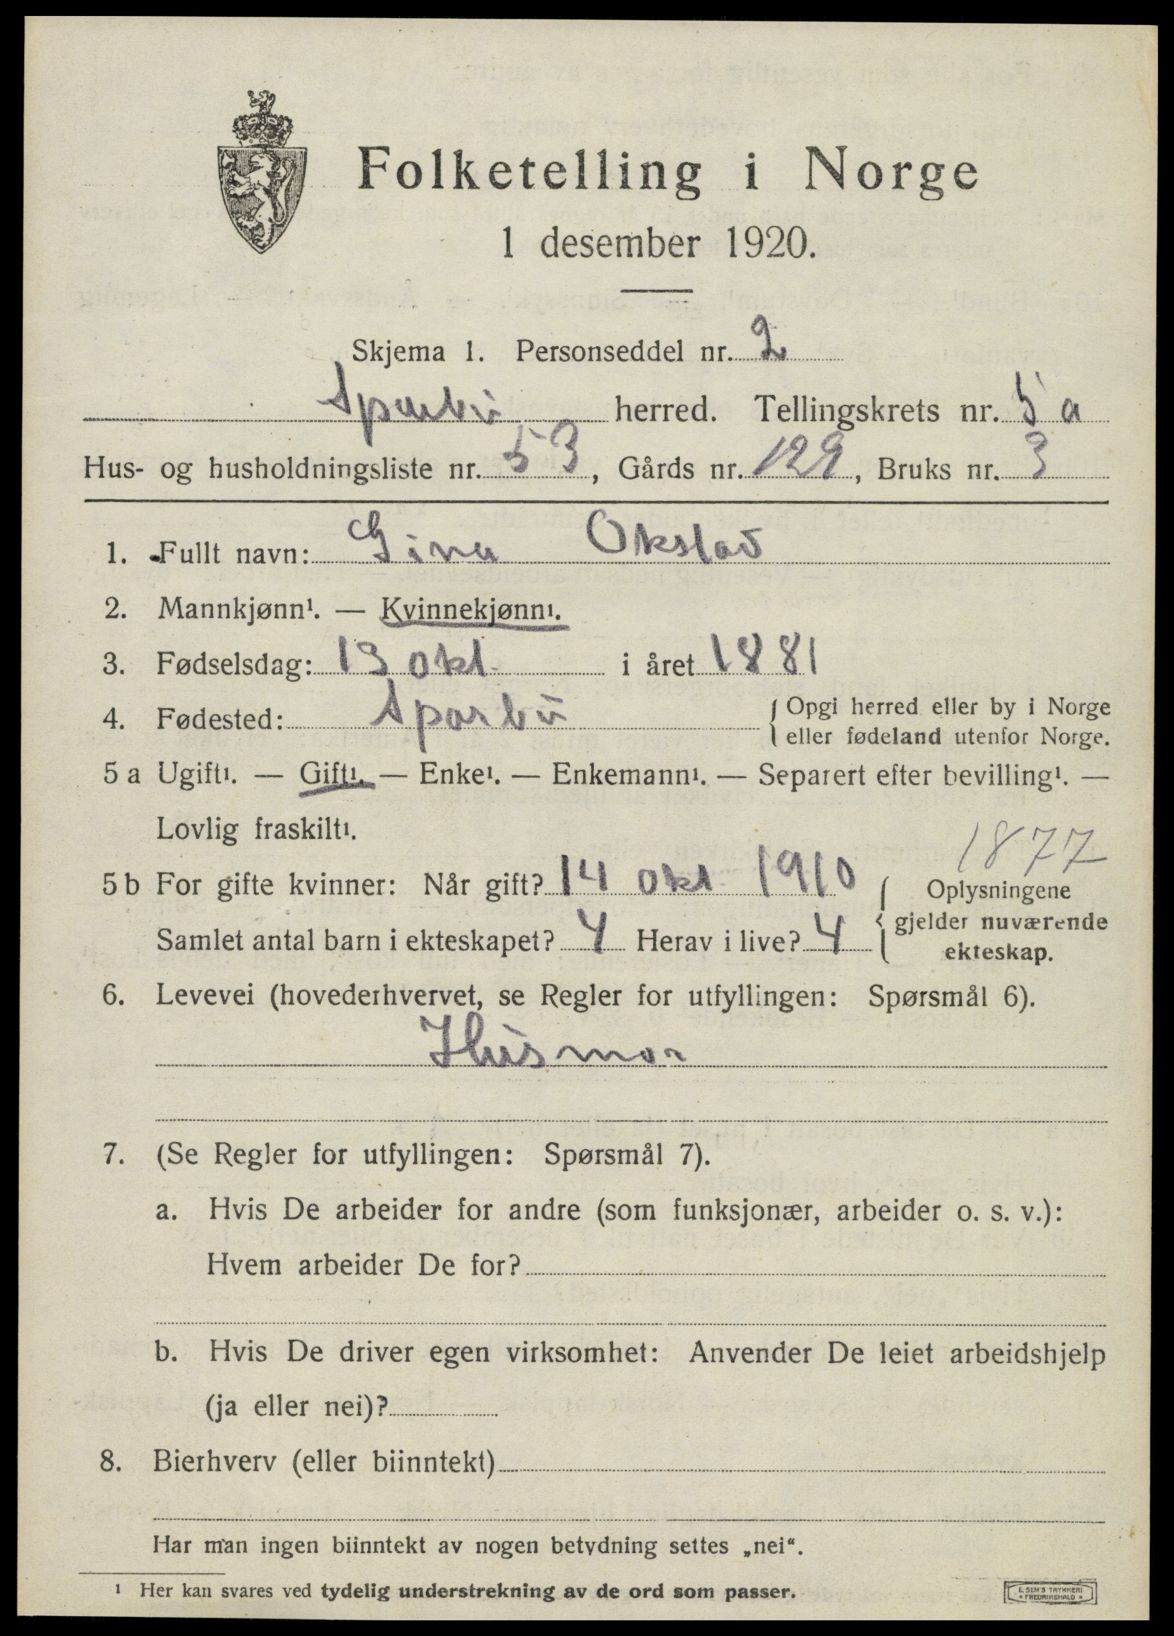 Folketelling i Norge
1 desember 1920.
Skjema 1. Personseddel nr. 2
Sparbu herred. Tellingskrets nr. 5 a
Hus- og husholdningsliste nr. 53, Gårds nr. 129, Bruks nr. 3
1. Fullt navn: Gina Okstad
2. Mannkjønn¹. — Kvinnekjønn¹.
3. Fødselsdag: 13 okt i året 1881
4. Fødested: Sparbu { Opgi herred eller by i Norge
eller fødeland utenfor Norge.
5 a Ugift¹. — Gift¹. — Enke¹. — Enkemann¹. — Separert efter bevilling¹. —
Lovlig fraskilt¹.
1877
5 b For gifte kvinner: Når gift? 14 okt 1910 { Oplysningene
gjelder nuværende
ekteskap.
Samlet antal barn i ekteskapet? 4 Herav i live? 4
6. Levevei (hovederhvervet, se Regler for utfyllingen: Spørsmål 6).
Husmor
7. (Se Regler for utfyllingen: Spørsmål 7).
a. Hvis De arbeider for andre (som funksjonær, arbeider o. s. v.):
Hvem arbeider De for?
b. Hvis De driver egen virksomhet: Anvender De leiet arbeidshjelp
(ja eller nei)?
8. Bierhverv (eller biinntekt)
Har man ingen biinntekt av nogen betydning settes „nei".
¹ Her kan svares ved tydelig understrekning av de ord som passer.
E. SEM'S TRYKKERI
FREDRIKSHALD